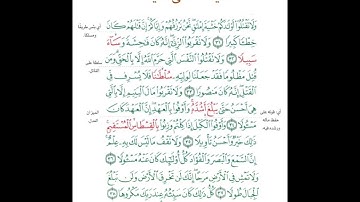 وَلَا تَقْتُلُوٓا۟ أَوْلَٰدَكُمْ خَشْيَةَ إِمْلَٰقٍ نَّحْنُ نَرْزُقُهُمْ وَإِيَّاكُمْ إِنَّ قَتْلَهُمْ كَانَ
خِطْـًٔا كَبِيرًا ٣١ وَلَا تَقْرَبُوا۟ ٱلزِّنَىٰٓ إِنَّهُۥ كَانَ فَٰحِشَةً وَسَآءَ
سَبِيلًا ٣٢ وَلَا تَقْتُلُوا۟ ٱلنَّفْسَ ٱلَّتِى حَرَّمَ ٱللَّهُ إِلَّا بِٱلْحَقِّ وَمَن
قُتِلَ مَظْلُومًا فَقَدْ جَعَلْنَا لِوَلِيِّهِۦ سُلْطَٰنًا فَلَا يُسْرِف فِّى
ٱلْقَتْلِ إِنَّهُۥ كَانَ مَنصُورًا ٣٣ وَلَا تَقْرَبُوا۟ مَالَ ٱلْيَتِيمِ إِلَّا بِٱلَّتِى
هِىَ أَحْسَنُ حَتَّىٰ يَبْلُغَ أَشُدَّهُۥ وَأَوْفُوا۟ بِٱلْعَهْدِ إِنَّ ٱلْعَهْدَ كَانَ
مَسْـُٔولًا ٣٤ وَأَوْفُوا۟ ٱلْكَيْلَ إِذَا كِلْتُمْ وَزِنُوا۟ بِٱلْقِسْطَاسِ ٱلْمُسْتَقِيمِ
ذَٰلِكَ خَيْرٌ وَأَحْسَنُ تَأْوِيلًا ٣٥ وَلَا تَقْفُ مَا لَيْسَ لَكَ بِهِۦ عِلْمٌ
إِنَّ ٱلسَّمْعَ وَٱلْبَصَرَ وَٱلْفُؤَادَ كُلُّ أُو۟لَٰٓئِكَ كَانَ عَنْهُ مَسْـُٔولًا ٣٦
وَلَا تَمْشِ فِى ٱلْأَرْضِ مَرَحًا إِنَّكَ لَن تَخْرِقَ ٱلْأَرْضَ وَلَن تَبْلُغَ
ٱلْجِبَالَ طُولًا ٣٧ كُلُّ ذَٰلِكَ كَانَ سَيِّئُهُۥ عِندَ رَبِّكَ مَكْرُوهًا ٣٨
أي بئس طريقا
ومسلكا
سلطة على
القاتل
أي قوته على
حفظ ماله
ورشده فيه
الميزان
العدل